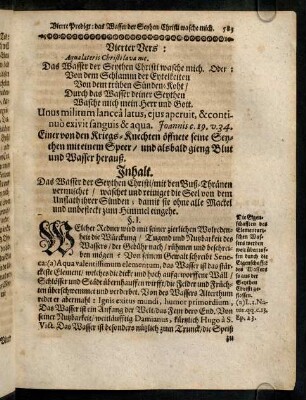 Vierte Predigt: das Wasser der Seythen Christi wasche mich. 583
Vierter Vers:
Aqua lateris Christi lava me.
Das Wasser der Seythen Christi wasche mich. Oder:
Von dem Schlamm der Eytelkeiten
Von dem trüben Sünden-Koht/
Durch das Wasser deiner Seythen
Wasche mich mein Herr und Gott.
Unus militum lanceâ latus, ejus aperuit, & conti-
nuò exivit sanguis & aqua. Joannis c. 19. v. 34.
Einer von den Kriegs-Knechten öffnete seine Sey-
then mit einem Speer/ und alsbald gieng Blut
und Wasser herauß.
Inhalt.
Das Wasser der Seythen Christi/mit den Buß-Thränen
vermischet/ waschet und reiniget die Seel von dem
Unflath ihrer Sünden/ damit sie ohne alle Mackel
und unbefleckt zum Himmel eingehe.
§. I.
Welcher Redner wird mit seiner zierlichen Wolreden-
heit die Würckung/ Tugend und Nutzbarkeit des
Wassers/ der Gebühr rühmen und beschreiben
mögen? Von seinem Gewalt schreibt Sene-
ca: (a) Aqua valentissimum elementum, das Wasser ist das stär-
ckeste Element/ welches die dicke und hoch auffgeworffene Wäll/
Schlösser und Städt überhauffen wirfft/ die Felder und Früch-
ten überschwemmet und verderbet. Von des Wassers Alterthumb
redet er abermahl: Ignis exitus mundi, humor primordium,
Das Wasser ist ein Anfang der Welt/ das Feur dero End. Von
seiner Nutzbarkeit/ weitläuffig Damianus, kürtzlich Hugo à S.
Vict. Das Wasser ist besonders nützlich zum Trunck/ die Speiß
zu
Die Eigen-
schafften des
Elementari-
schen Was-
sers werden
von
durch die
Eigenschafft
des Wassers
so aus der
Seythen
Christi ge-
flossen.
(a) L. 3. Na-
tur. qq. c. 13.
Ep. 23.